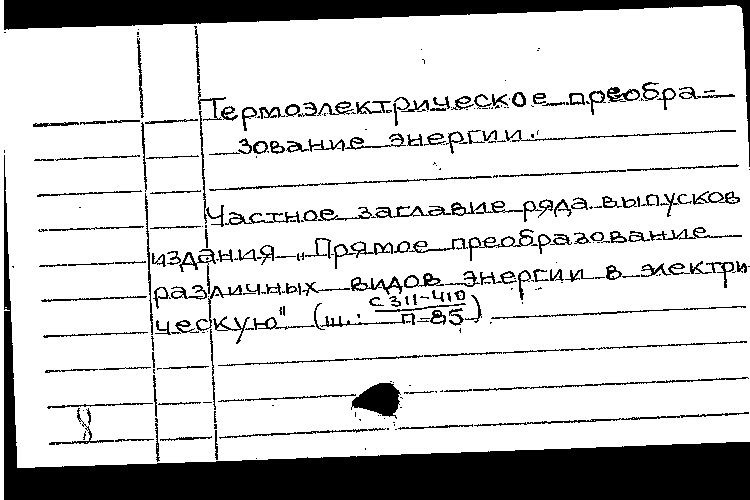 Термоэлектрическое преобра=
зование энергии.
Частное заглавие ряда выпусков
издания „Прямое преобразование
различных видов энергии в электри
ческую" (ш.: С311-410
П-85)
8